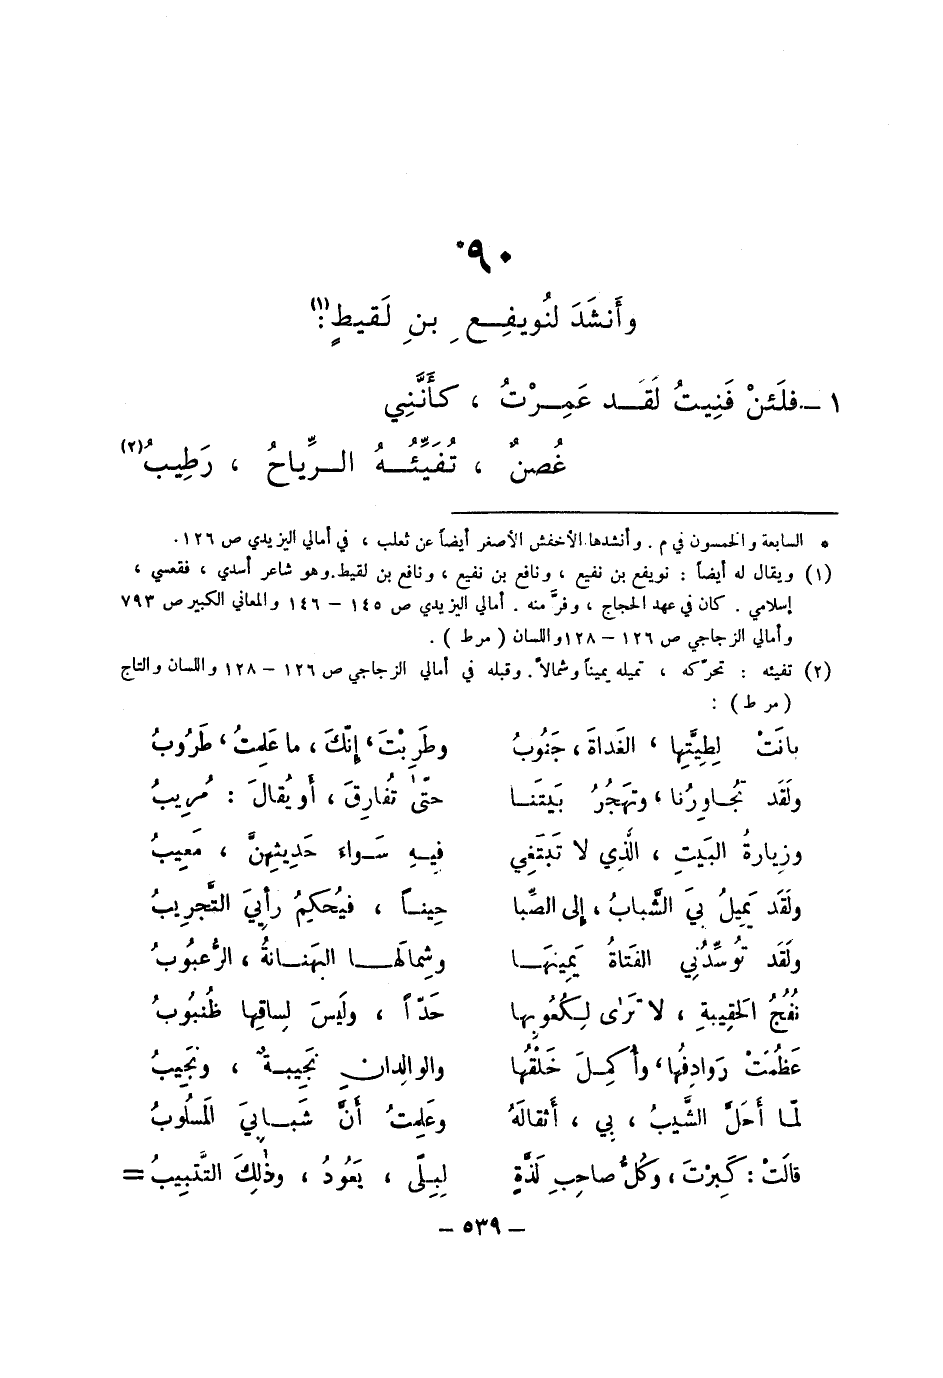 ٩٠*
وأَنشَدَ لنُويفِعِ بنِ لَقيطٍ:(١)
١ ـ فلَئنْ فَنِيتُ لَقَد عَمِرْتُ ، كأَنَّنِي
غُصنٌ ، تُفَيِّئُهُ الرِّياحُ ، رَطِيبُ(٢)
* السابعة والخمسون في م . وأنشدها الأخفش الأصغر أيضاً عن ثعلب ، في أمالي اليزيدي ص ١٢٦ .
(١) ويقال له أيضاً : نويفع بن نفيع ، ونافع بن نفيع ، ونافع بن لقيط . وهو شاعر أسدي ، فقعسي ،
إسلامي . كان في عهد الحجاج ، وفرَّ منه . أمالي اليزيدي ص ١٤٥ – ١٤٦ والمعاني الكبير ص ٧٩٣
وأمالي الزجاجي ص ١٢٦ – ١٢٨ واللسان ( مرط ) .
(٢) تفيئه : تحرّكه ، تميله يميناً وشمالاً . وقبله في أمالي الزجاجي ص ١٢٦ – ١٢٨ واللسان والتاج
( مرط ) :
بانَتْ لِطِيَّتِها ، الغَداةَ ، جَنُوبُ وطَرِبْتَ ، إنَّكَ ، ما عَلِمتُ ، طَرُوبُ
ولَقَد تُجاوِرُنا ، وتَهجُرُ بَيتَنا حتّى تُفارِقَ ، أو يُقالَ : مُرِيبُ
وزِيارةُ البَيتِ ، الَّذِي لا تَبتَغِي فِيهِ سَواءَ حَدِيثِهِنَّ ، مَعِيبُ
ولَقَد يَمِيلُ بيَ الشَّبابُ ، إلى الصِّبا حِيناً ، فيُحكِمُ رأيِيَ التَّجرِيبُ
ولَقَد تُوسِّدُنِي الفَتاةُ يَمِينَها وشِمالَها البَهنانةُ ، الرُّعبُوبُ
نُفُجُ الحَقِيبةِ ، لا تَرَى لِكُعُوبِها حَدّاً ، ولَيسَ لِساقِها ظُنبُوبُ
عَظُمَتْ رَوادِفُها ، وأُكمِلَ خَلْقُها والوالِدانِ نَجِيبةٌ ، ونَجِيبُ
لمّا أحَلَّ الشَّيبُ ، بي ، أثقالَهُ وعَلِمتُ أنَّ شَبابِيَ المَسلُوبُ
قالَتْ : كَبِرْتَ ، وكُلُّ صاحِبِ لَذَّةٍ لِبِلًى ، يَعُودُ ، وذٰلِكَ التَّتبِيبُ =
– ٥٣٩ –